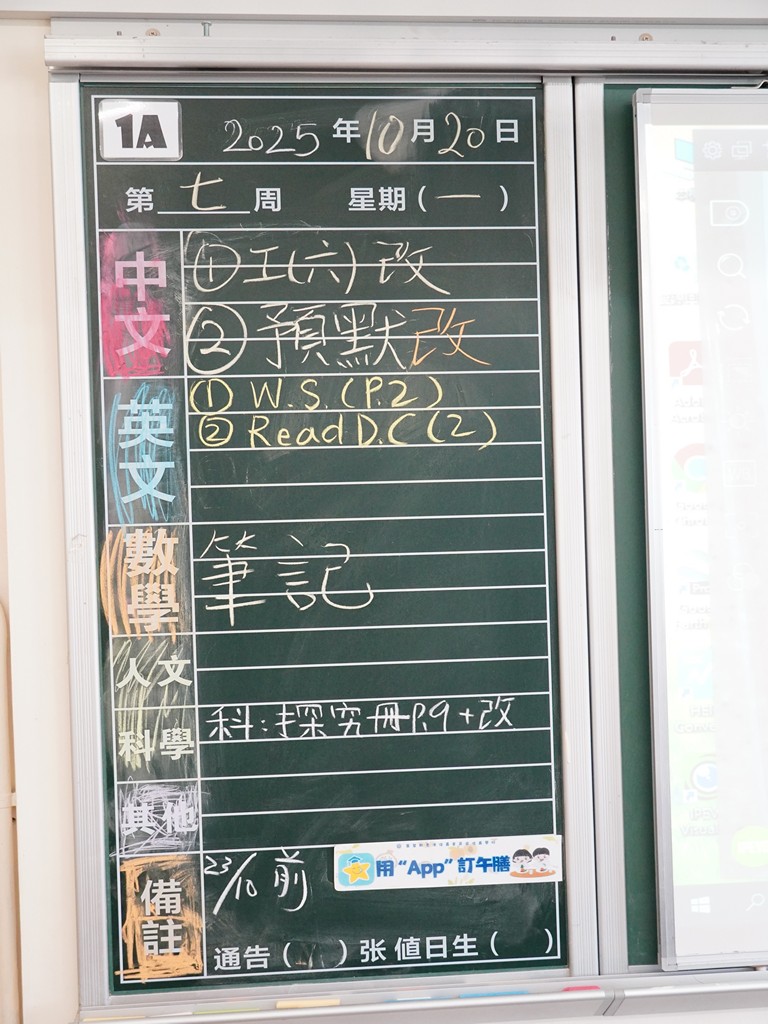 1A 2025 年 10 月 20 日
第 七 周 星期 ( 一 )
中文 ① 工(六) 改
② 預默改
英文 ① W.S. (P.2)
② Read D.C (2)
數學 筆記
人文
科學 科:探究冊P.9+改
其他
用 "App" 訂午膳
備註 23/10 前
通告 ( ) 张 值日生 ( )